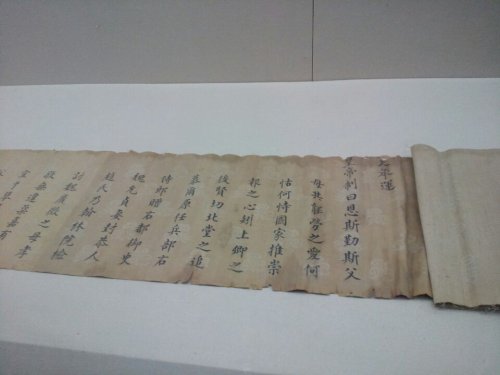 天承運
皇帝制曰恩斯勤斯父
母共勞之愛何
怙何恃國家推崇
報之心矧上卿之
後賢切北堂之追
慕爾原任兵部右
侍郎贈右都御史
魏允貞妻封恭人
趙氏乃翰林院檢
討魏廣微之母孝
敬無違柔嘉有